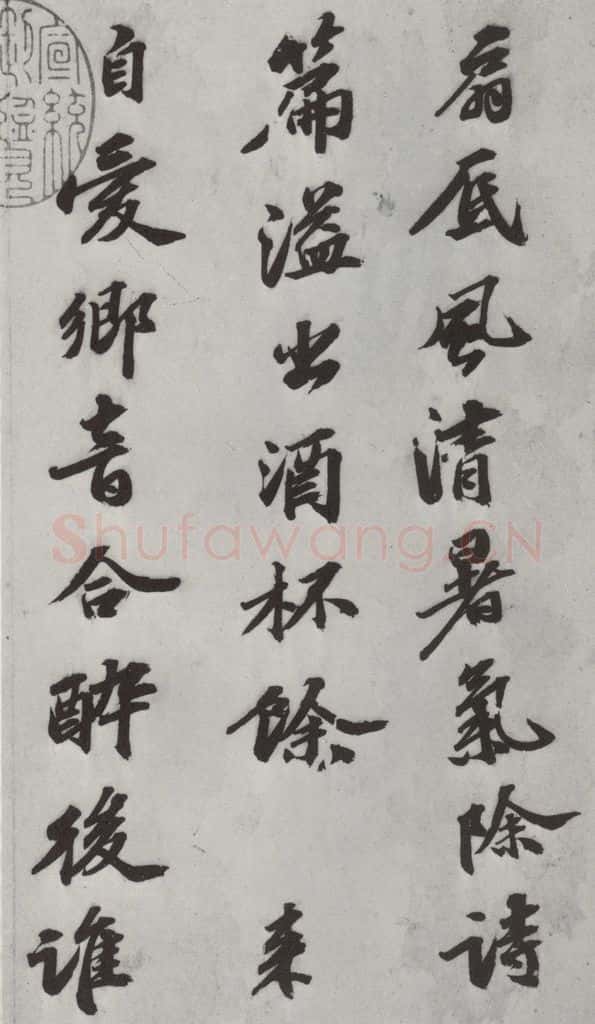 扇底風清暑氣除詩
篇溢出酒杯餘 来
自愛鄉音合醉後誰
宣統
Shufawang.CN